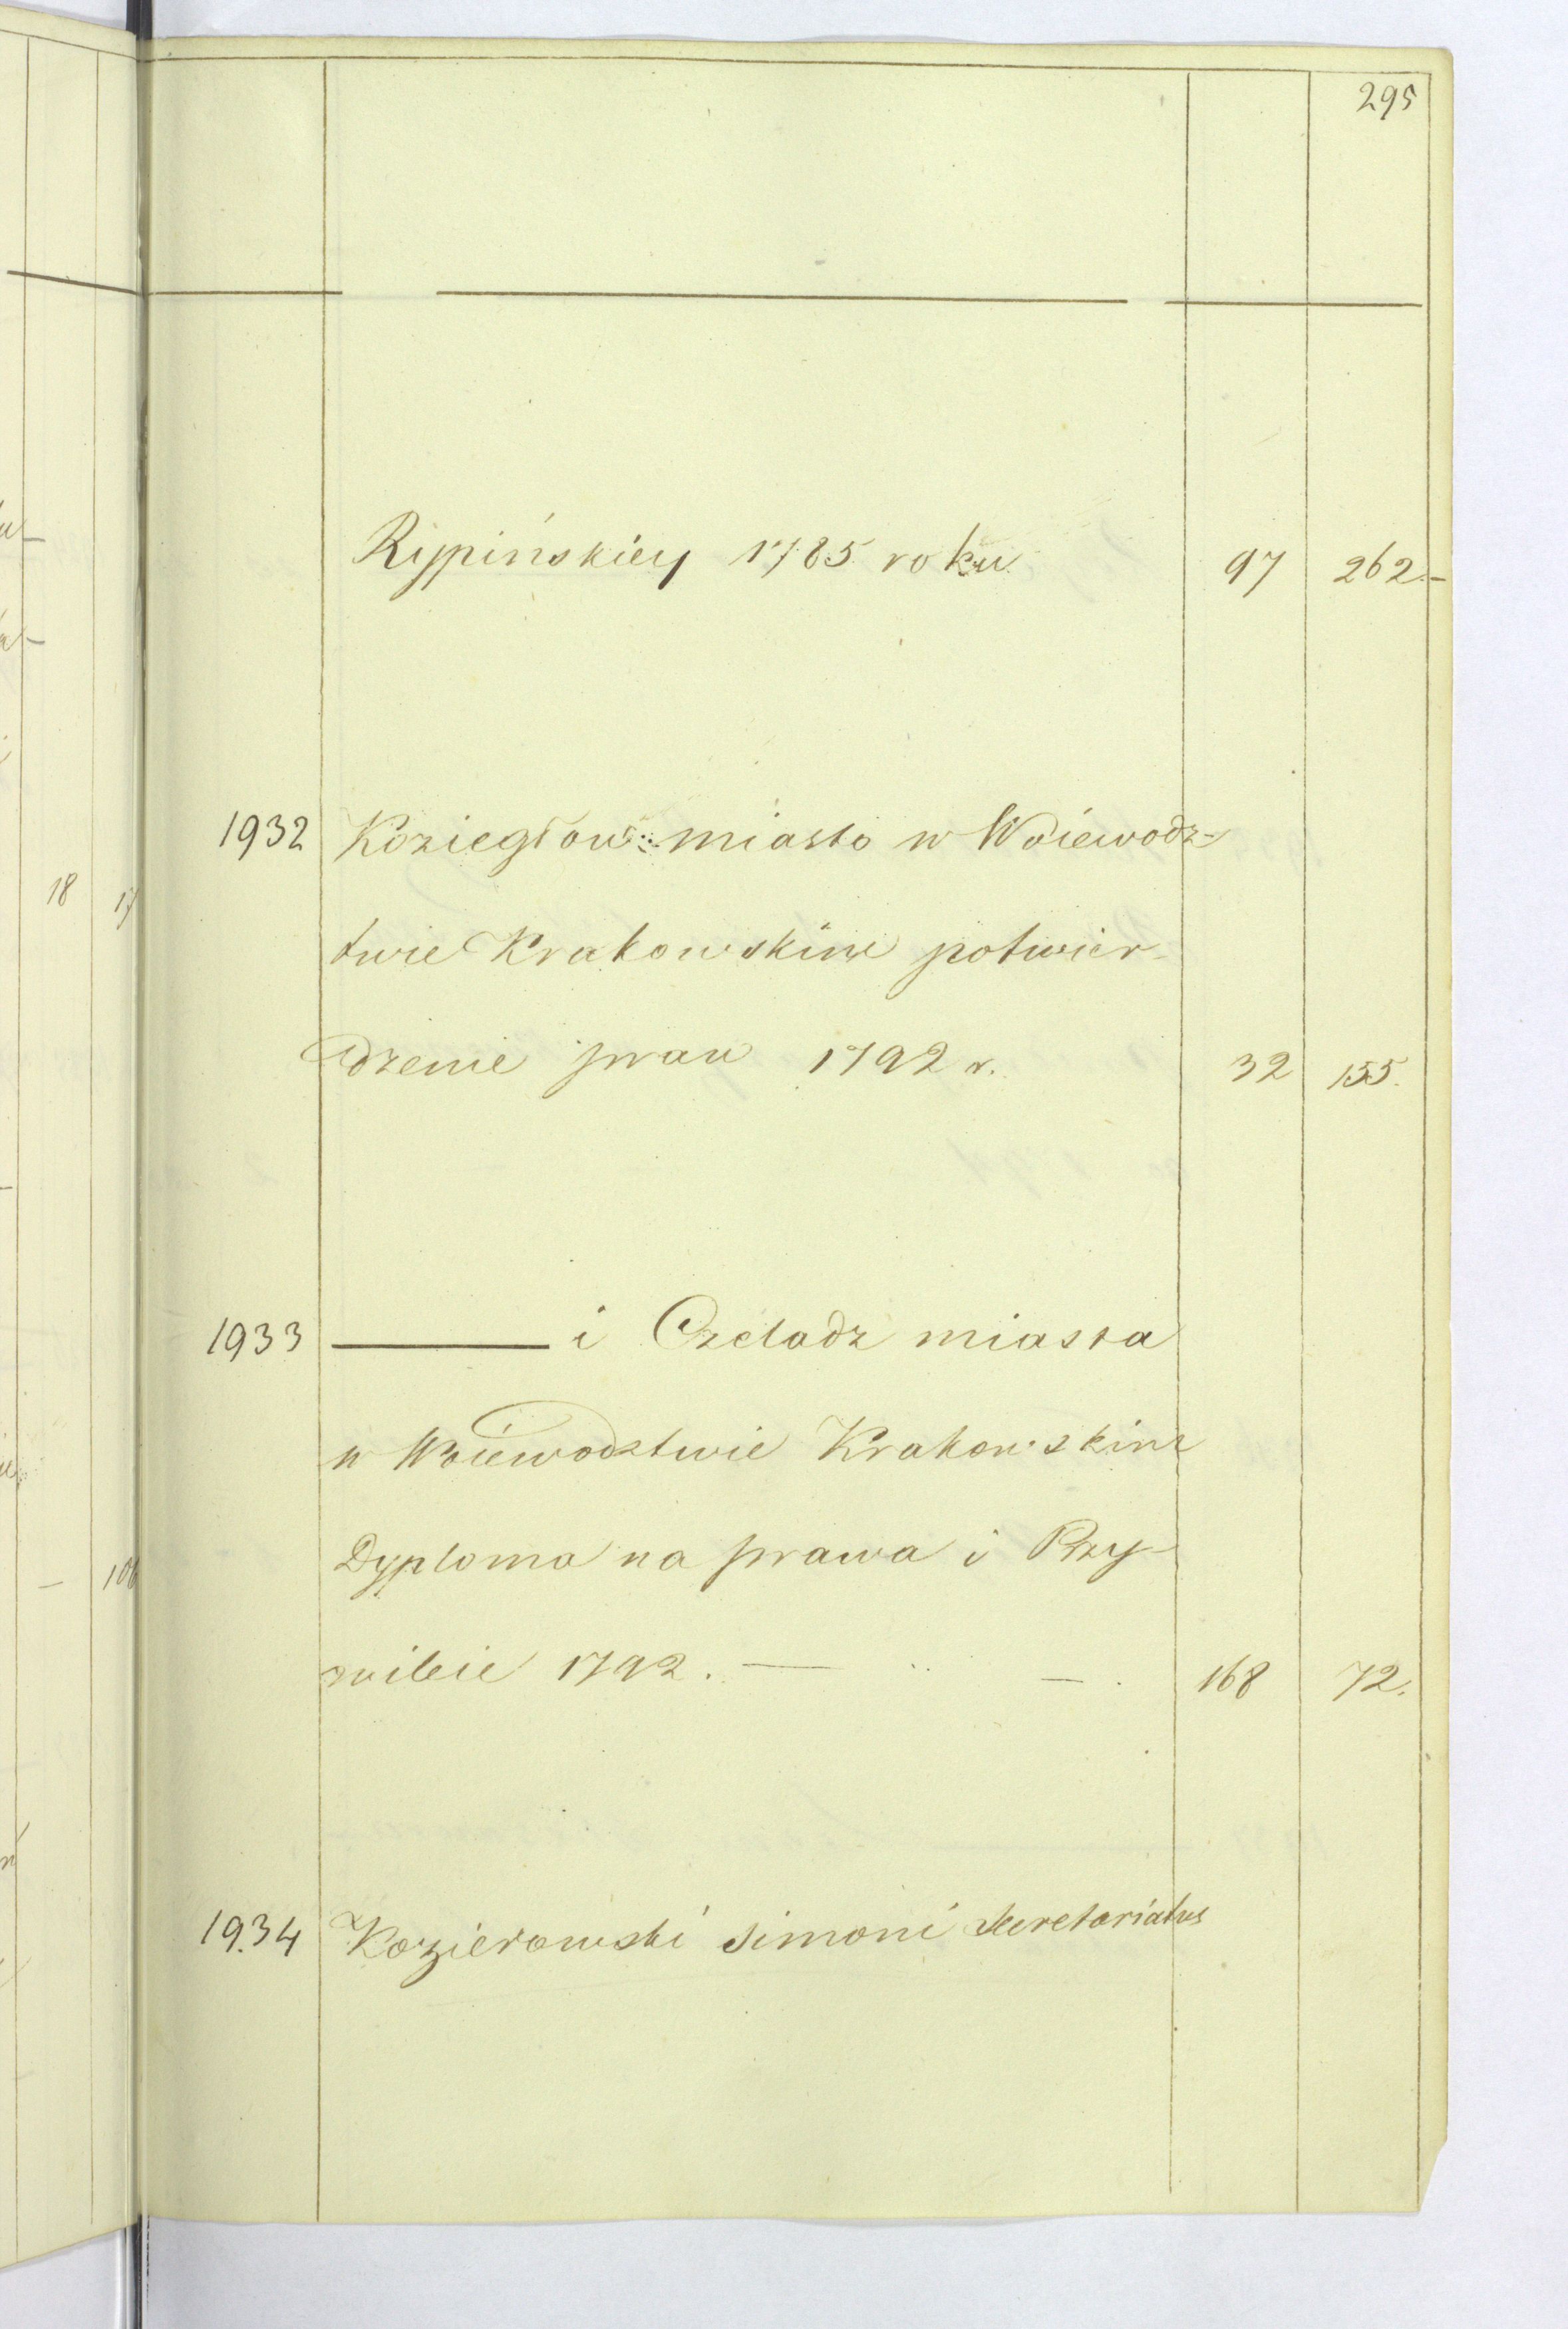 295
Rypińskiey 1785 roku 97 262.-
1932 Koziegłow miasto w Woiewodz-
twie Krakowskim potwier-
dzenie praw 1792 r. 32 155.
1933 ——— i Czeladz miasta
w Woiewodztwie Krakowskim
Dyploma na prawa i Przy-
wileie 1792. — — . 168 72.
1934 Kozierowski Simoni Secretariatus
18 17
— 106